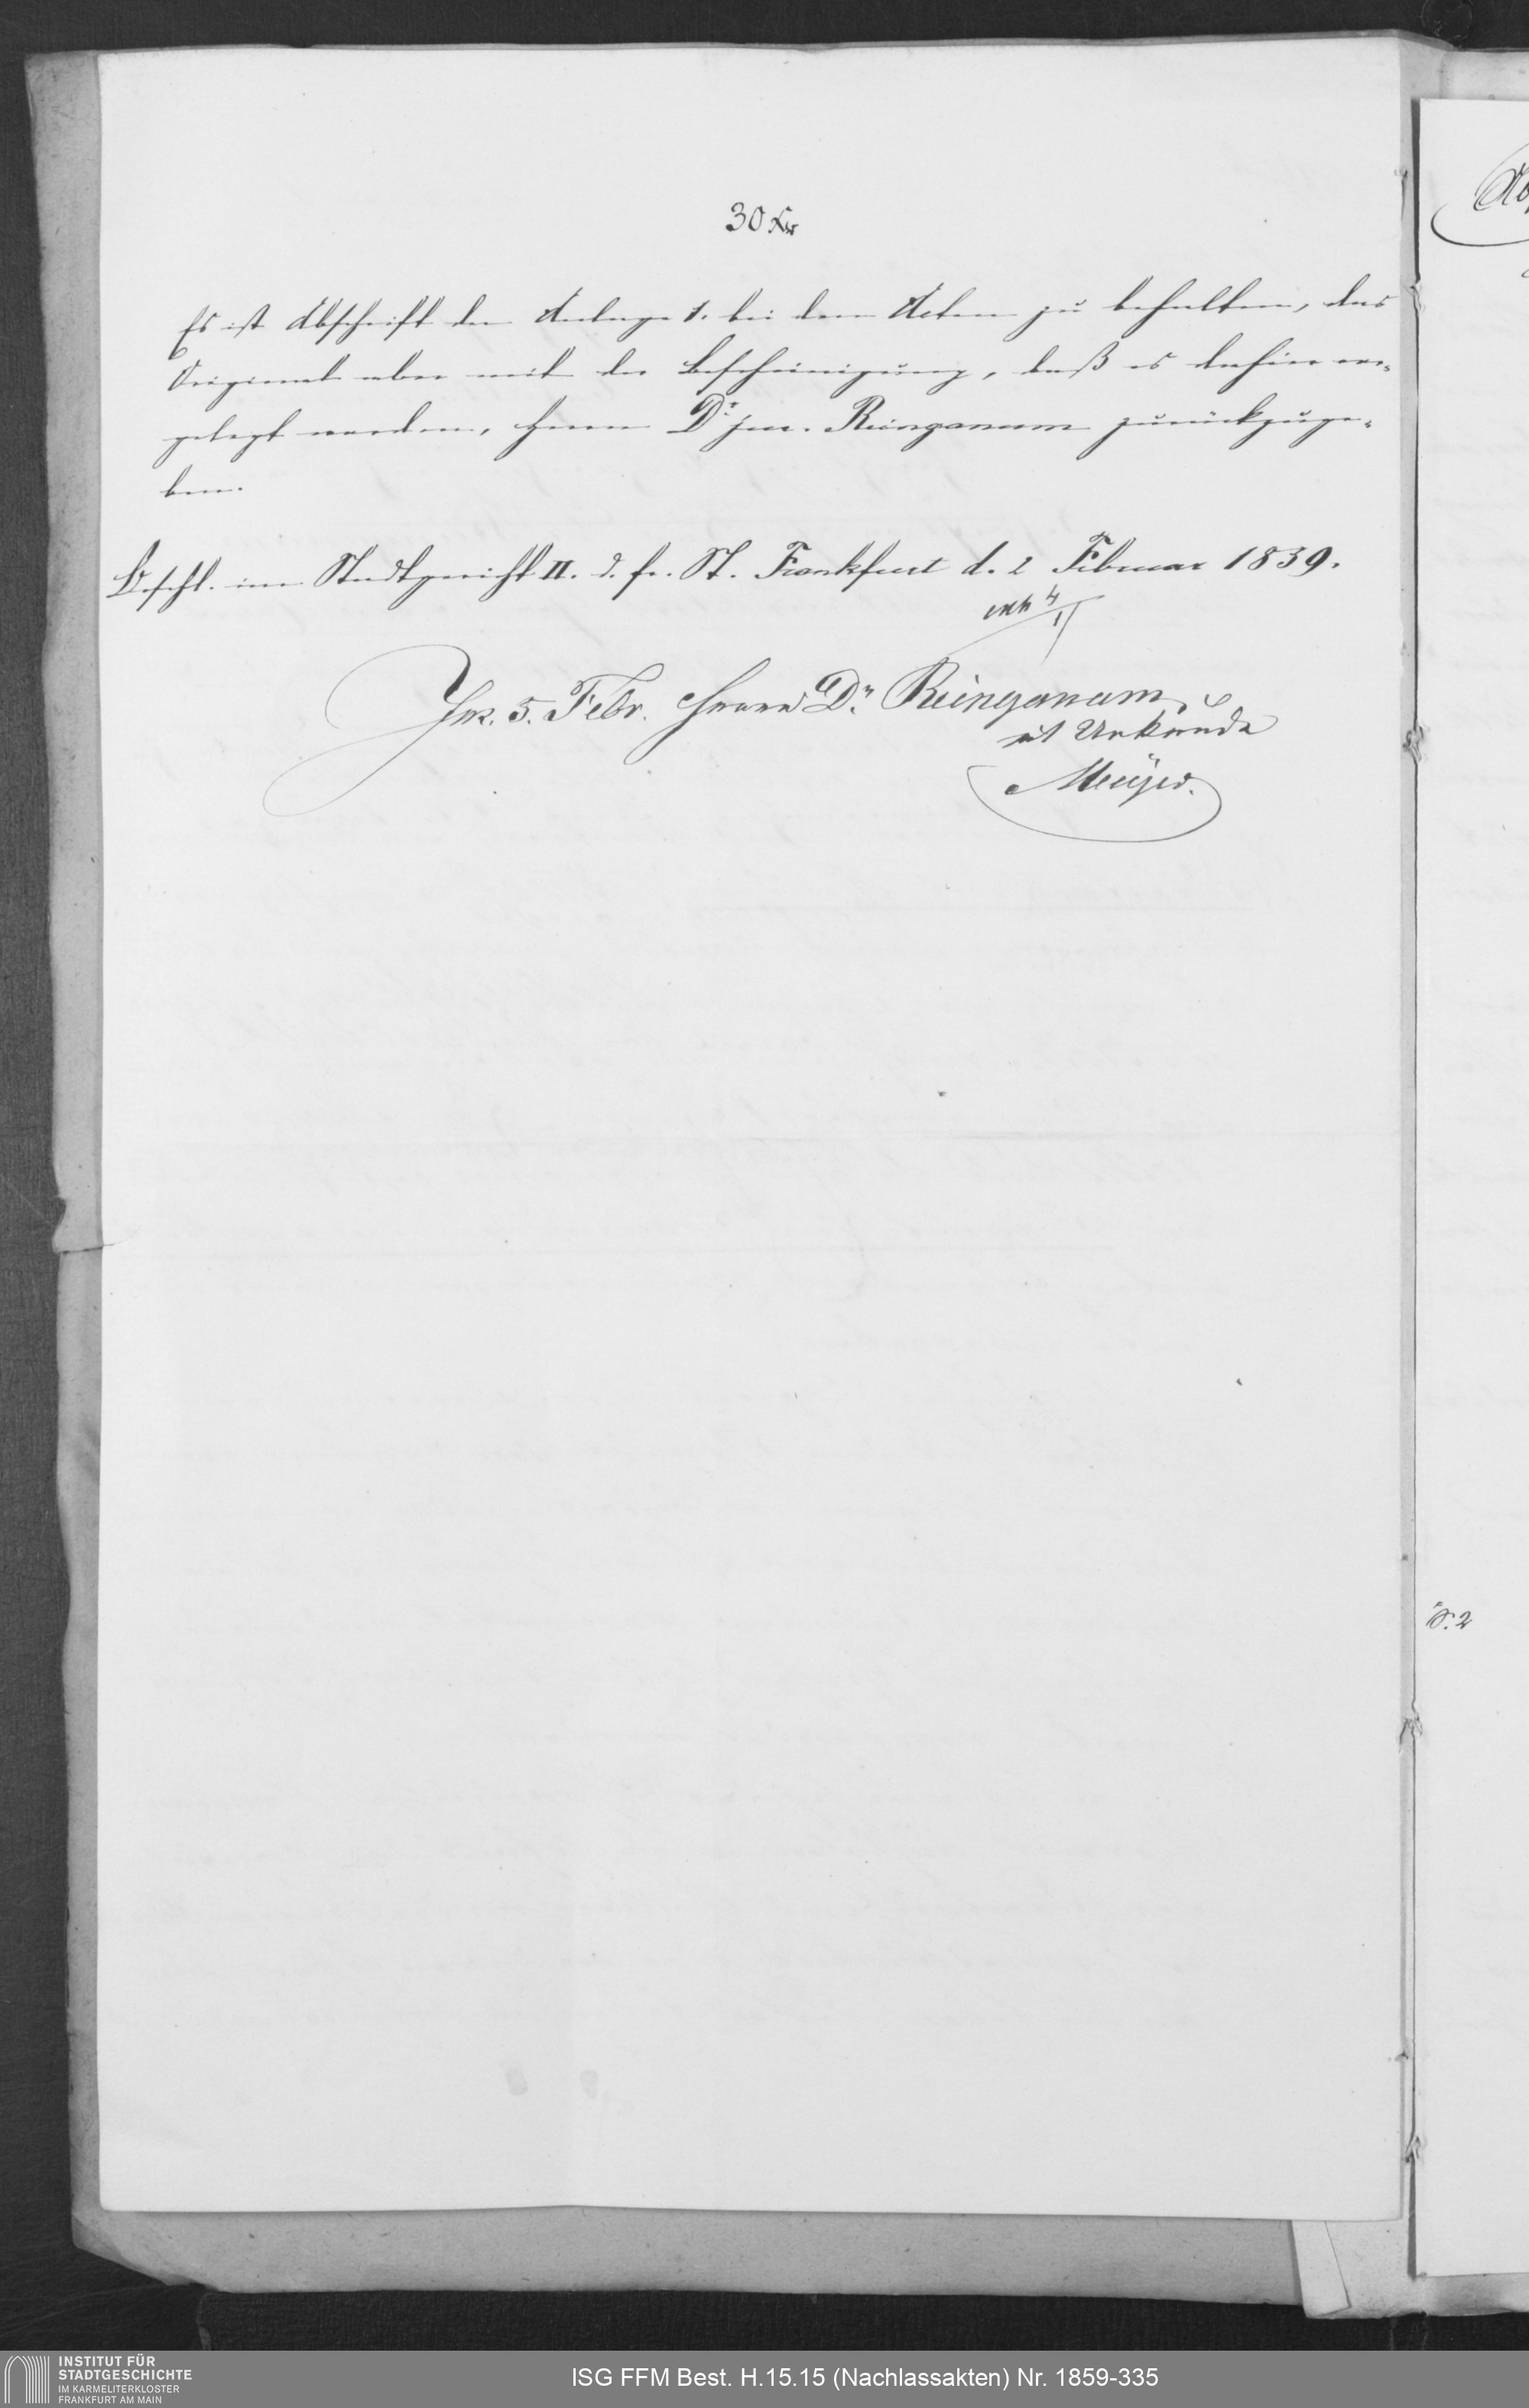 30 Kr
Es ist Abschrift der Anlage 1. bei den Acten zu behalten, das
Original aber mit der Bescheinigung, daß es dahier vor-
gelegt worden, Herrn Dr. jur. Reinganum zurückzuge-
ben.
Beschl. im Stadtgericht II. d. fr. St. Frankfurt d. 2 Februar 1839.
4/II
Ins. 5. Febr. Herrn Dr. Reinganum,
ut Urkunde
Meüjer.
S. 2
INSTITUT FÜR
STADTGESCHICHTE
IM KARMELITERKLOSTER
FRANKFURT AM MAIN
ISG FFM Best. H.15.15 (Nachlassakten) Nr. 1859-335